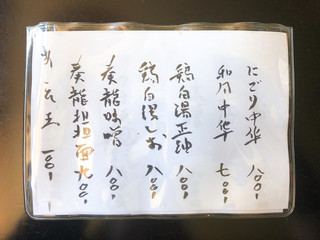 にごり中華 八〇〇
和風中華 七〇〇
鶏白湯正油 八〇〇
鶏白湯しお 八〇〇
葵龍味噌 八〇〇
葵龍担担面 九〇〇
玉 一〇〇